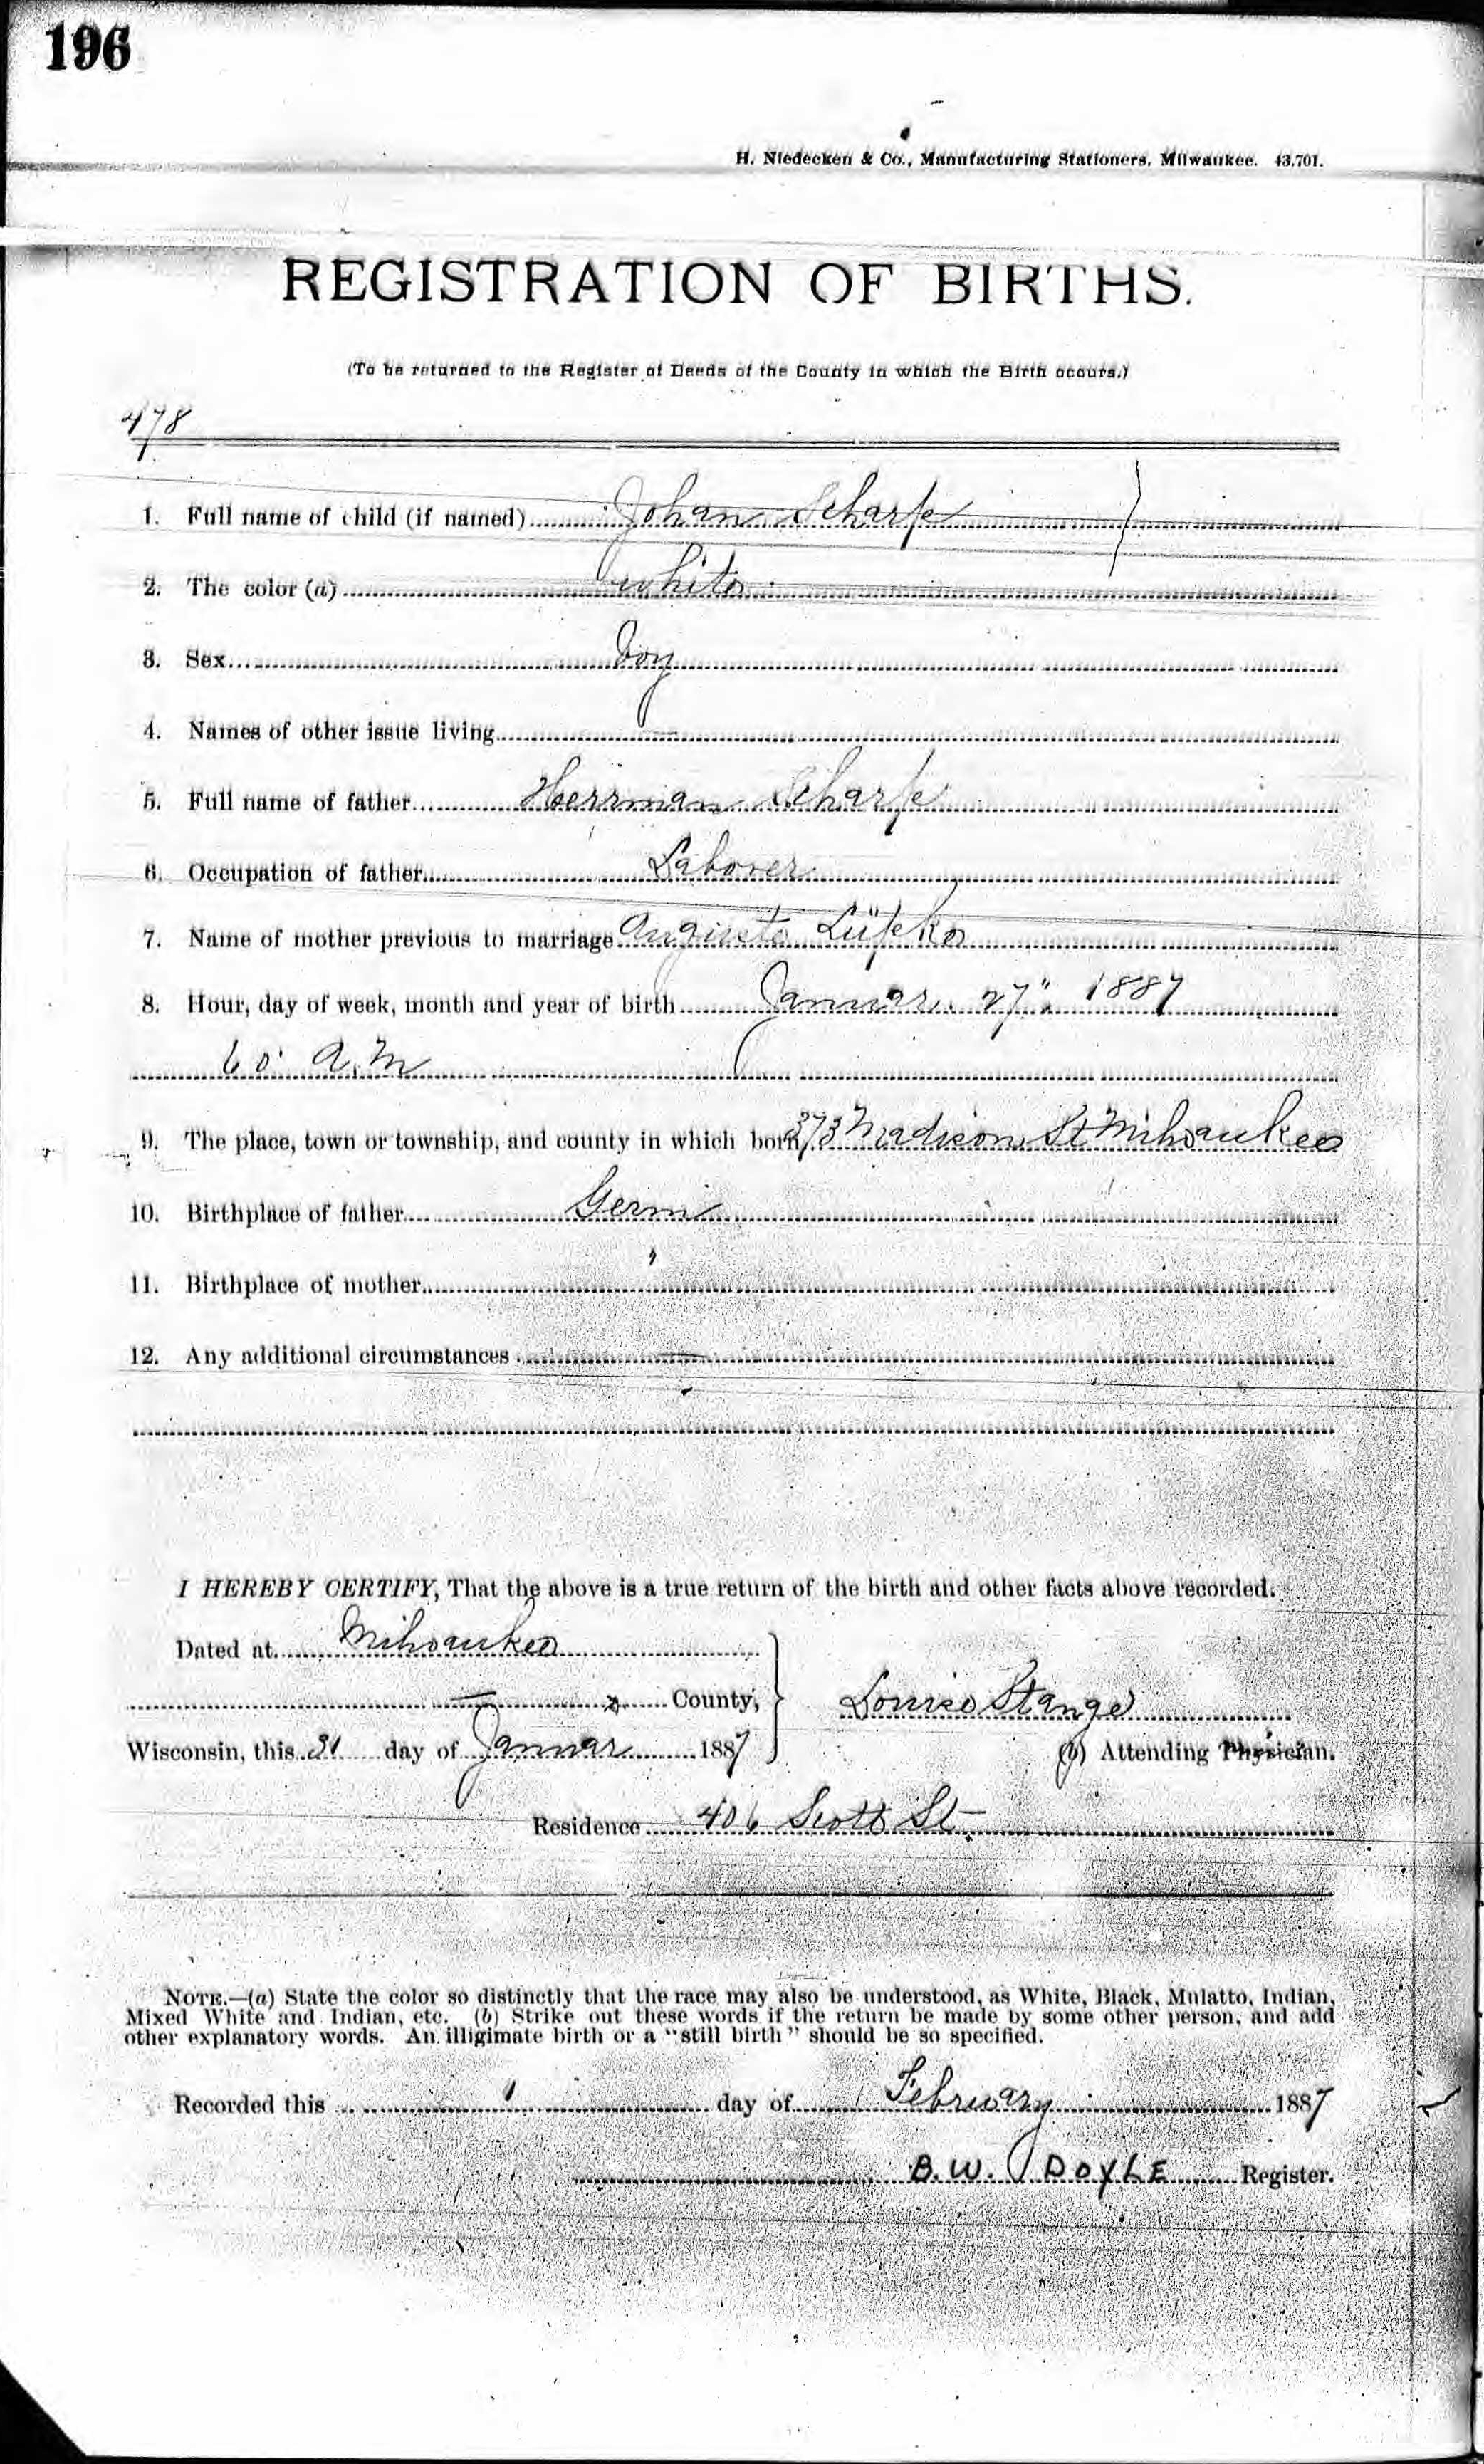 196
H. Niedecken & Co., Manufacturing Stationers, Milwaukee. 43,701.
REGISTRATION OF BIRTHS.
(To be returned to the Register of Deeds of the County in which the Birth occurs.)
478
1. Full name of child (if named) Johan Scharpe
2. The color (a) white
3. Sex boy
4. Names of other issue living —
5. Full name of father Herrman Scharpe
6. Occupation of father Laborer
7. Name of mother previous to marriage Auguste
8. Hour, day of week, month and year of birth Januar 27" 1887
6 o' a.m
9. The place, town or township, and county in which born 373 Madison St Milwaukee
10. Birthplace of father Germ
11. Birthplace of mother "
12. Any additional circumstances —
I HEREBY CERTIFY, That the above is a true return of the birth and other facts above recorded.
Dated at Milwaukee
— County,
Louise Stange
Wisconsin, this 31 day of Januar 1887
(b) Attending Physician.
Residence 406 Scott St
NOTE.—(a) State the color so distinctly that the race may also be understood, as White, Black, Mulatto, Indian,
Mixed White and Indian, etc. (b) Strike out these words if the return be made by some other person, and add
other explanatory words. An illigimate birth or a "still birth" should be so specified.
Recorded this 1 day of February 1887
B. W. DOYLE Register.